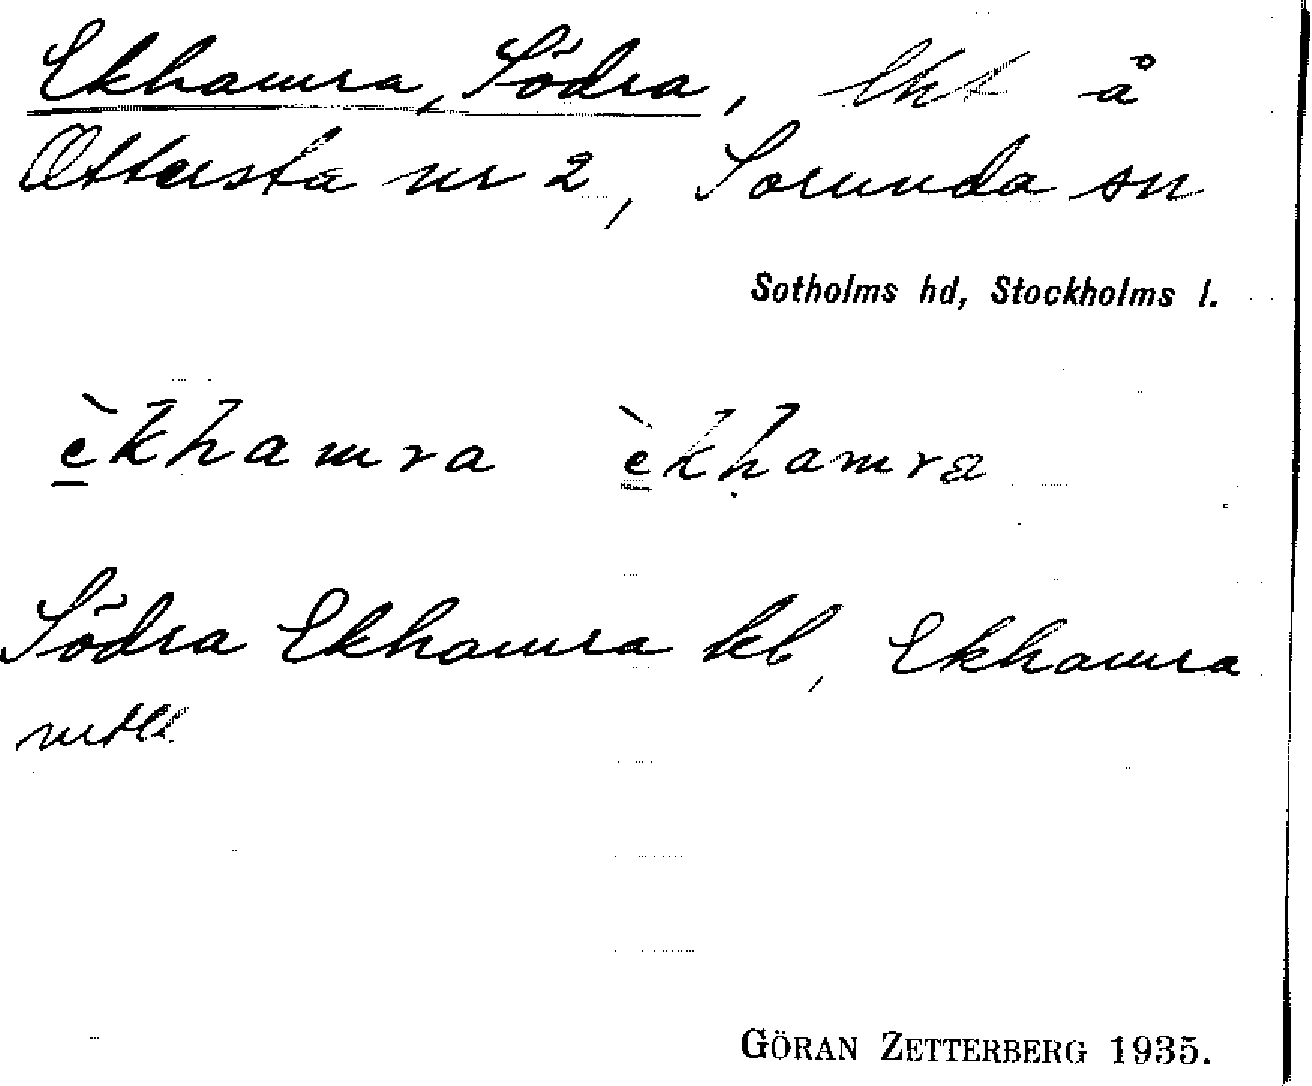 Ekhamra, Södra, lht å
Ottersta nr 2, Sorunda sn
Sotholms hd, Stockholms l.
èkhamra èkḥamra
Södra Ekhamra kb, Ekhamra
mtll
GÖRAN ZETTERBERG 1935.